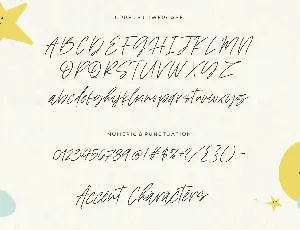 UPPER LOWERCASE
ABCDEFGHIJKLMN
OPQRSTUVWXYZ
abcdefghijklmnopqrstuvwxyz
NUMERIC & PUNCTUATION
0123456789@!#$%+?/{}(),-
Accent Characters